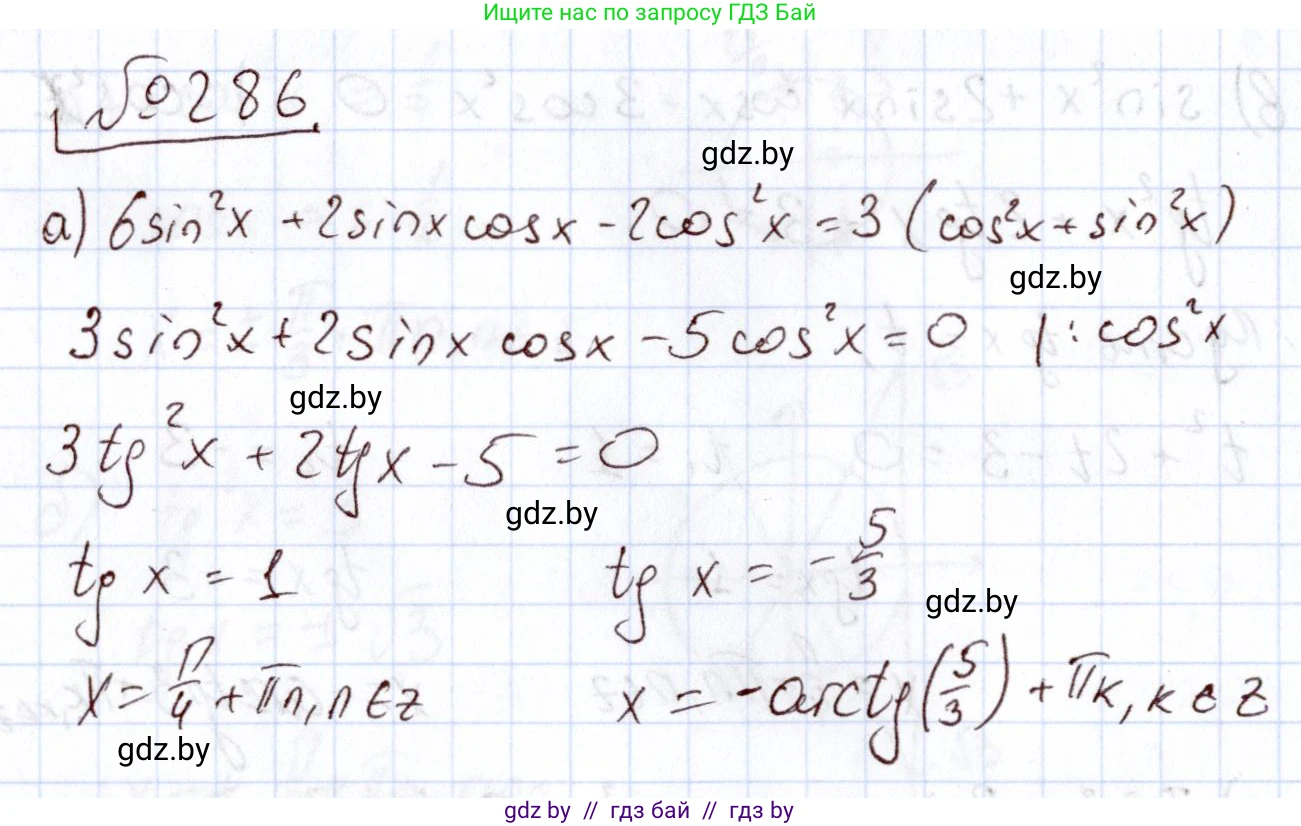 Ищите нас по запросу ГДЗ Бай
№286
gdz.by
а) 6sin²x + 2sinx cosx - 2cos²x = 3 (cos²x + sin²x)
gdz.by
3sin²x + 2sinx cosx - 5cos²x = 0 | : cos²x
gdz.by
3tg²x + 2tgx - 5 = 0
gdz.by
tg x = 1 tg x = -5/3
gdz.by
x = π/4 + πn, n ∈ z x = -arctg(5/3) + πk, k ∈ z
gdz.by
gdz by // гдз бай // гдз by